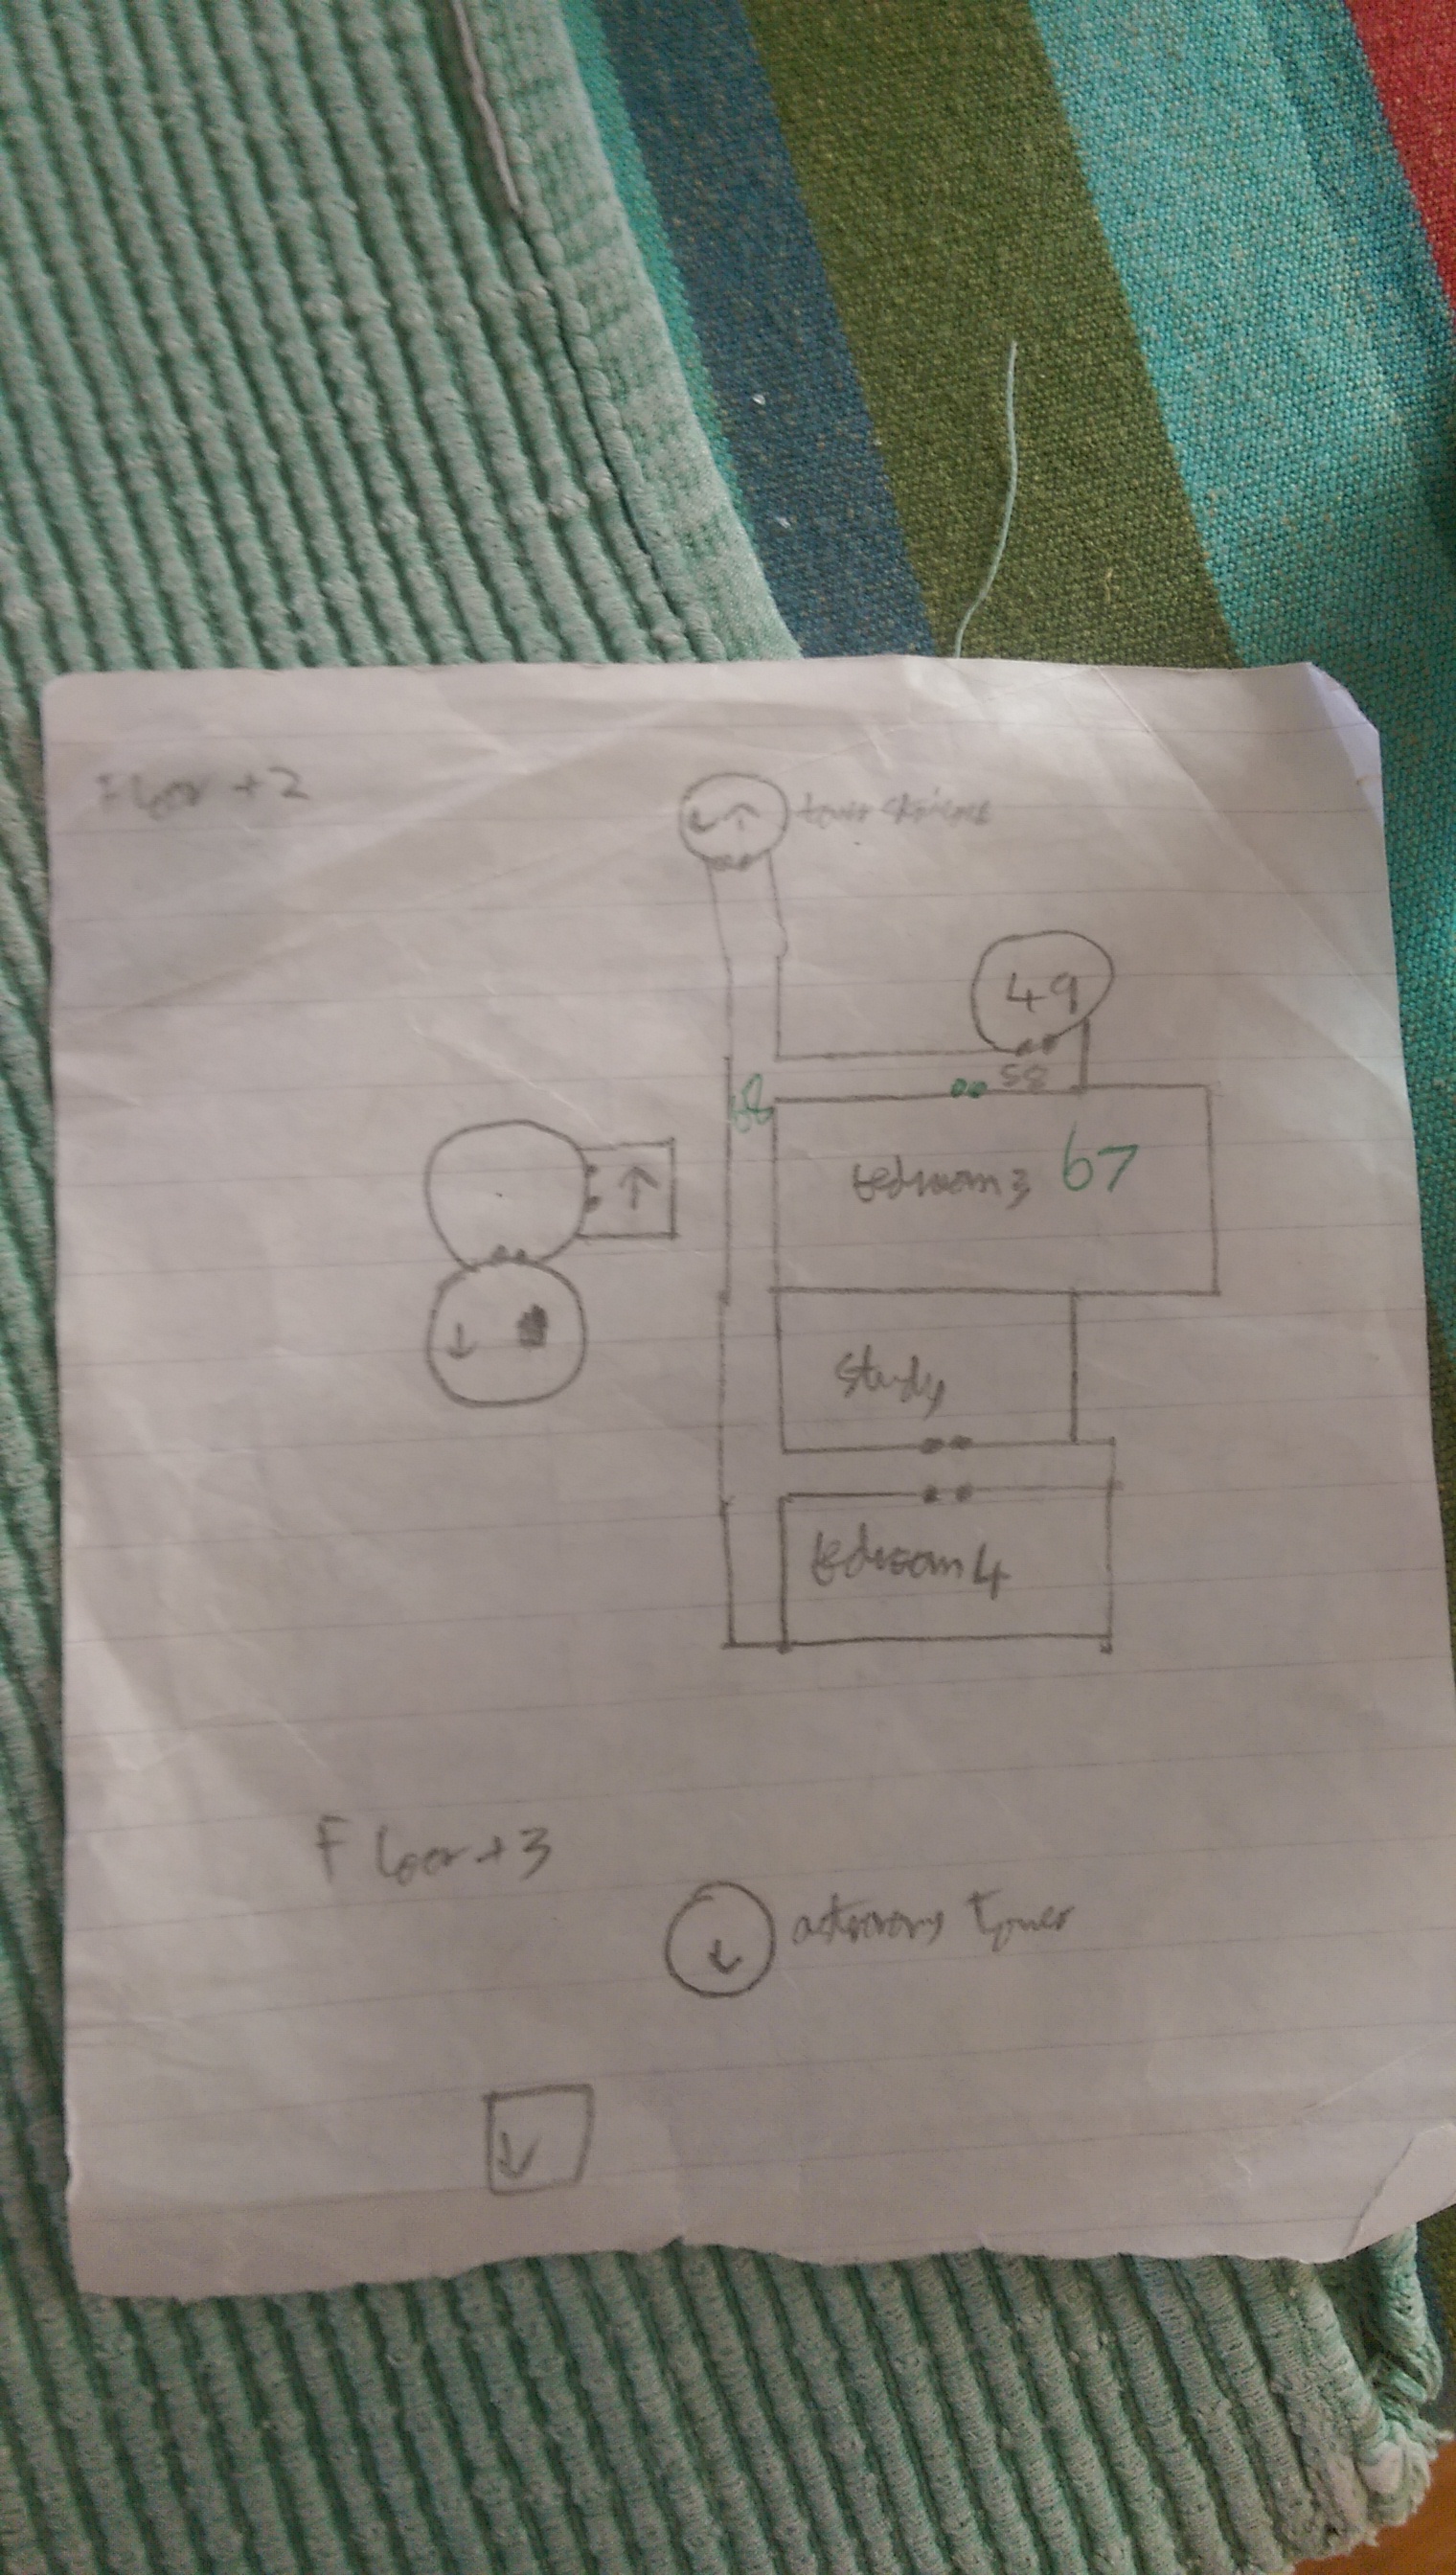 Floor +2
↓↑ tower staircase
49
58
68
bedroom 3 67
↑
↓
study
bedroom 4
Floor +3
↓ astronomy tower
↓